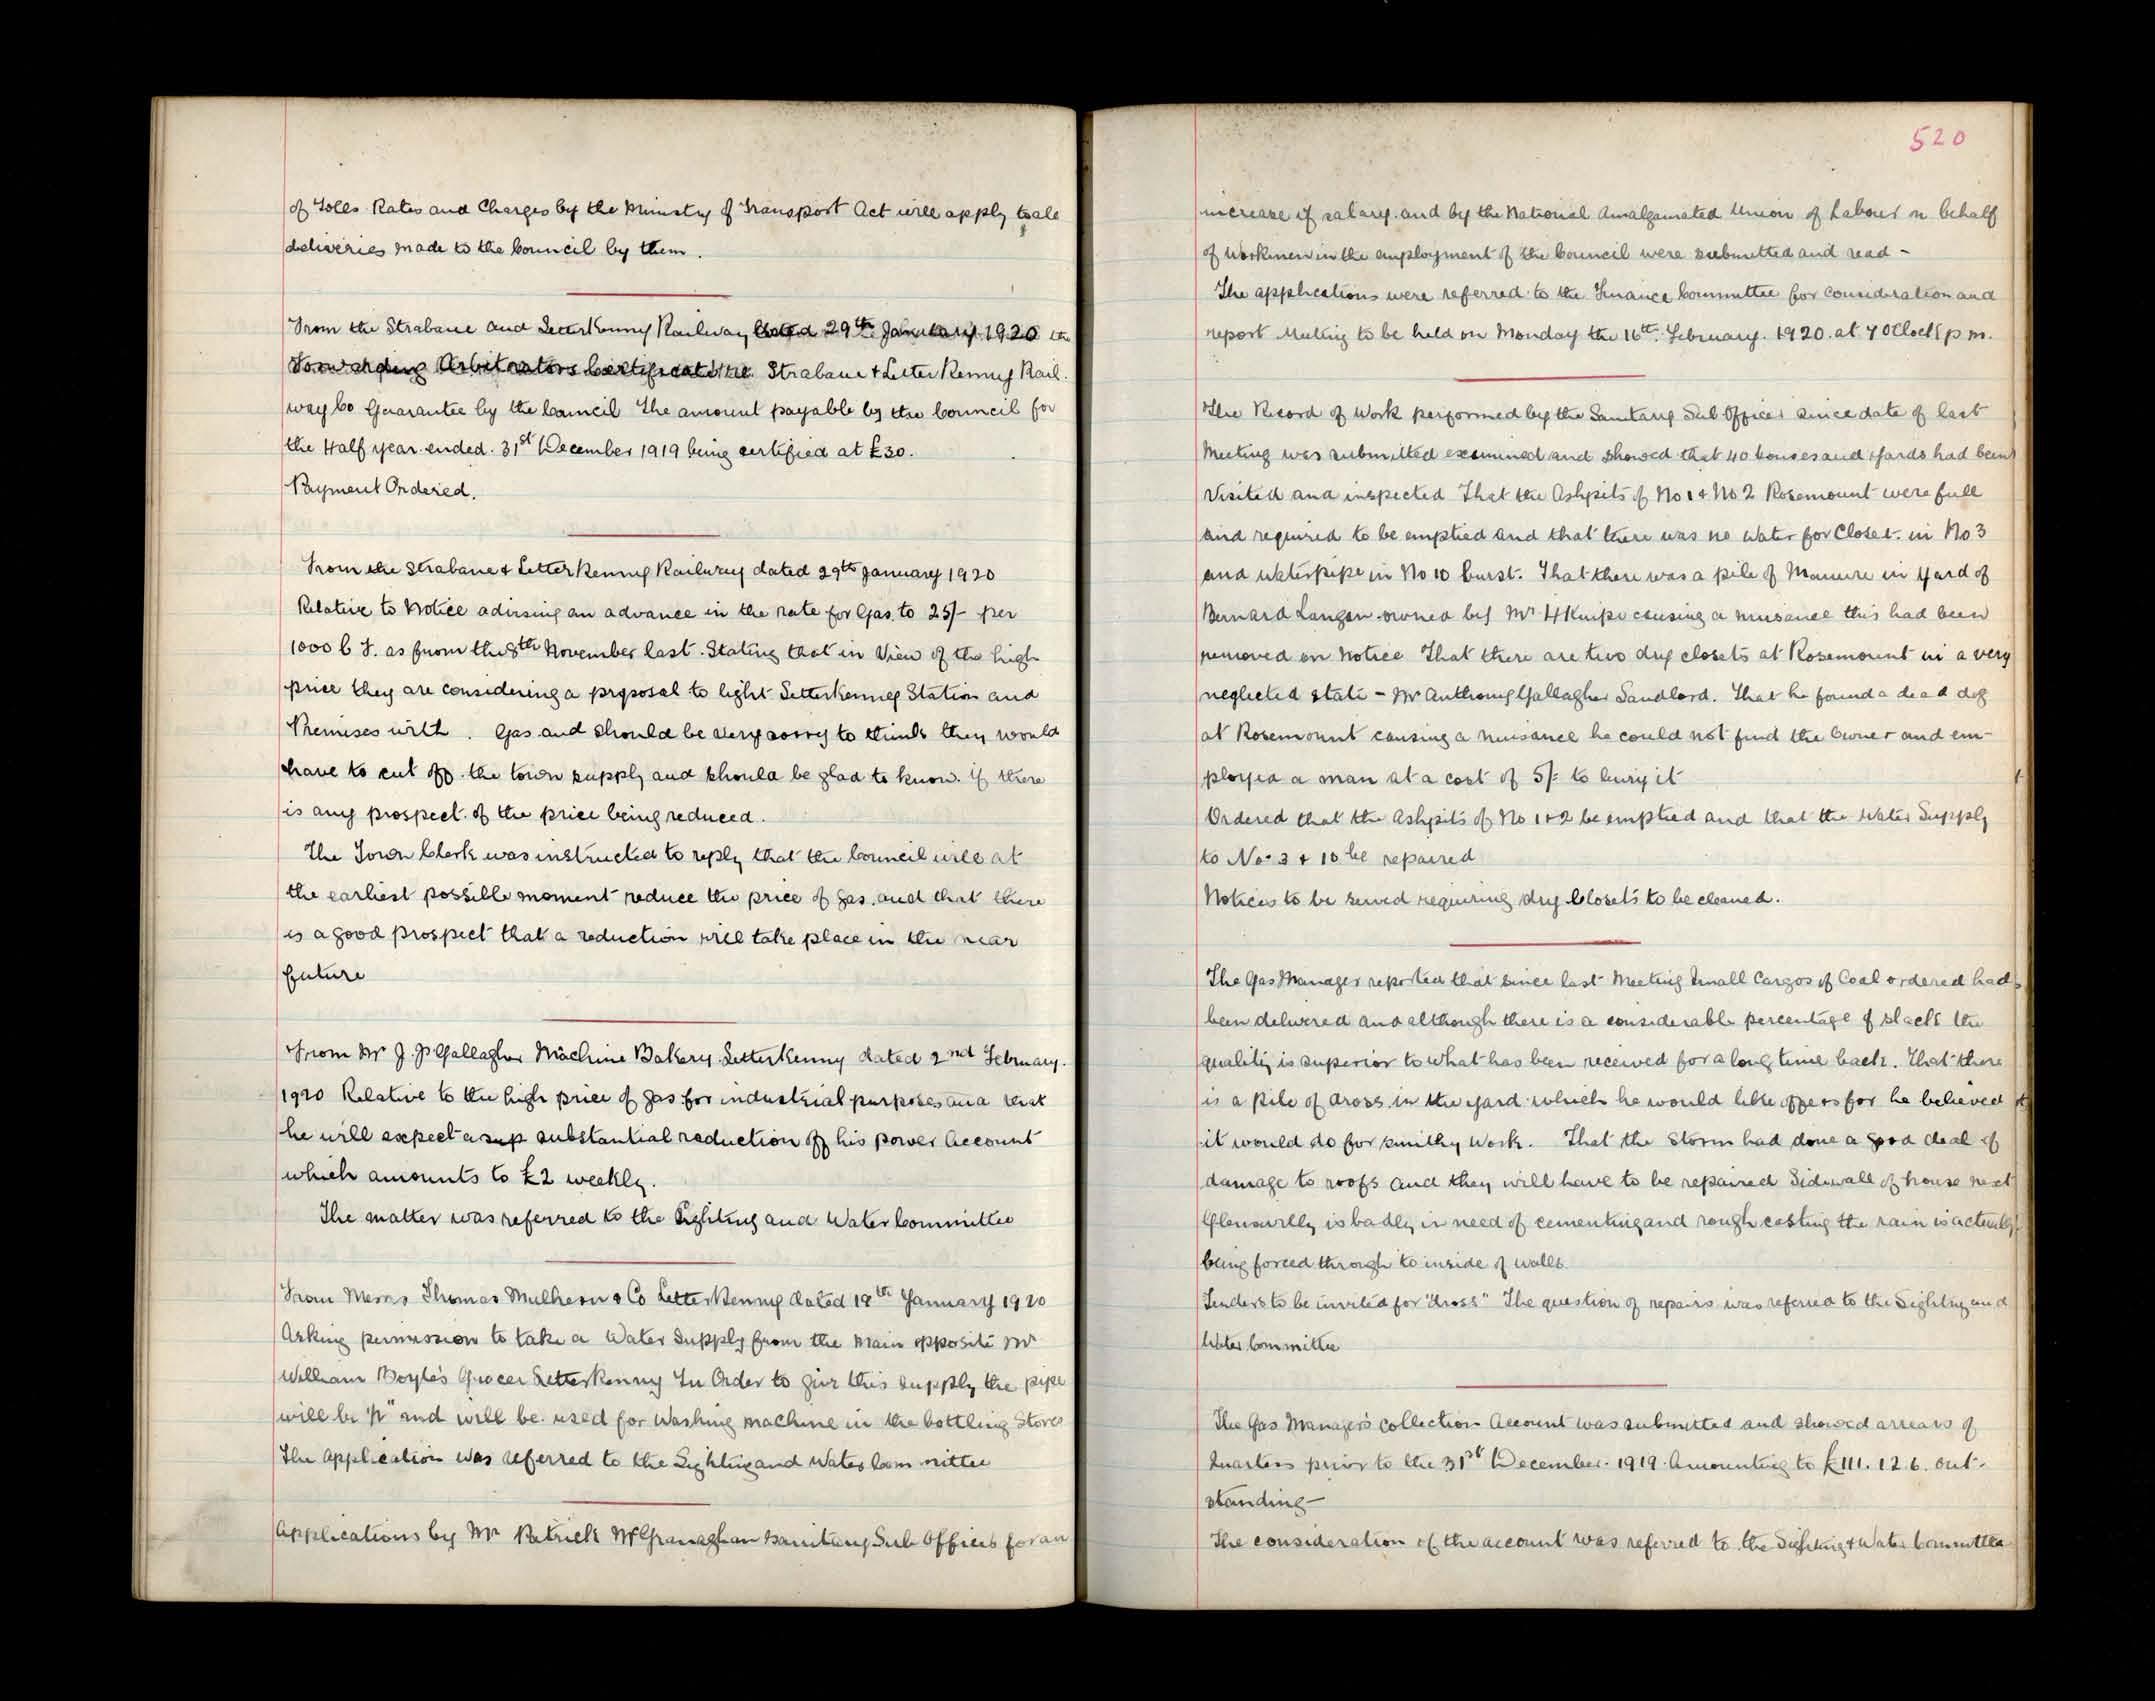 of Tolls Rates and Charges by the Ministry of Transport Act will apply to all
deliveries made to the Council by them.
From the Strabane and Letterkenny Railway dated 29th January 1920 the
Forwarding Arbitrators Certificate Strabane & Letterkenny Rail.
way Co Guarantee by the Council The amount payable by the Council for
the Half year ended. 31st December 1919 being certified at £30.
Payment Ordered.
From the Strabane & Letterkenny Railway dated 29th January 1920
Relative to Notice advising an advance in the rate for Gas. to 25/- per
1000 C F. as from the 8th November last. Stating that in View of the high
price they are considering a proposal to light Letterkenny Station and
Premises with . Gas and should be very sorry to think they would
have to cut off the town supply and should be glad to know. if there
is any prospect of the price being reduced.
The Town Clerk was instructed to reply that the Council will at
the earliest possible moment reduce the price of gas. and that there
is a good prospect that a reduction will take place in the near
future
From Mr J. P Gallagher Machine Bakery Letterkenny dated 2nd February.
1920 Relative to the high price of gas for industrial purposes and that
he will expect a sup substantial reduction off his power account
which amounts to £2 weekly.
The matter was referred to the Lighting and Water Committee
From Messrs Thomas Mulhern & Co Letterkenny dated 19th January 1920
Asking permission to take a Water Supply from the main opposite Mr
William Boyle's Grocer Letterkenny In Order to give this supply the pipe
will be and will be used for Washing machine in the bottling Stores
The Application was referred to the Lighting and Water Committee
Applications by Mr Patrick McGranaghan Sanitary Sub Officer for an
520
increase of salary. and by the National Amalgamated Union of Labour on behalf
of Workmen in the employment of the Council were submitted and read -
The applications were referred to the Finance Committee for consideration and
report Meeting to be held on Monday the 16th February. 1920. at 7 OClock p m.
The Record of Work performed by the Sanitary Sub Officer since date of last
Meeting was submitted examined and showed that 40 houses and yards had been
visited and inspected That the Ashpits of No 1 & No 2 Rosemount were full
and required to be emptied and that there was no water for Closet. in No 3
and waterpipe in No 10 burst. That there was a pile of Manure in Yard of
Bernard Langan owned by Mr causing a nuisance this had been
removed on Notice That there are two dry closets at Rosemount in a very
neglected state - Mr Anthony Gallagher Landlord. That he found a dead dog
at Rosemount causing a nuisance he could not find the Owner and em-
ployed a man at a cost of 5/- to bury it
Ordered that the Ashpits of No 1 & 2 be emptied and that the Water Supply
to No. 3 & 10 be repaired
Notices to be served requiring dry Closets to be cleaned.
The Gas Manager reported that since last Meeting Small Cargos of Coal ordered had
been delivered and although there is a considerable percentage of slack the
quality is superior to what has been received for a long time back. That there
is a pile of dross in the yard which he would like offers for he believed
it would do for smithy work. That the Storm had done a good deal of
damage to roofs and they will have to be repaired Sidewall of house next
Glenswilly is badly in need of cementing and rough casting the rain is actually
being forced through to inside of walls.
Tenders to be invited for "dross" The question of repairs was referred to the Lighting and
Water Committee
The Gas Manager's collection Account was submitted and showed arrears of
Quarters prior to the 31st December. 1919 Amounting to £111. 12 6. out-
standing-
The consideration of the account was referred to the Lighting & Water Committee